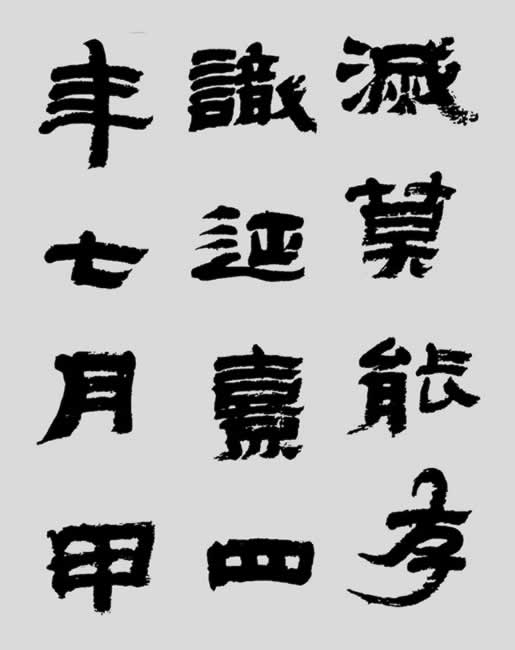 滅莫能存
識延熹四
年七月甲